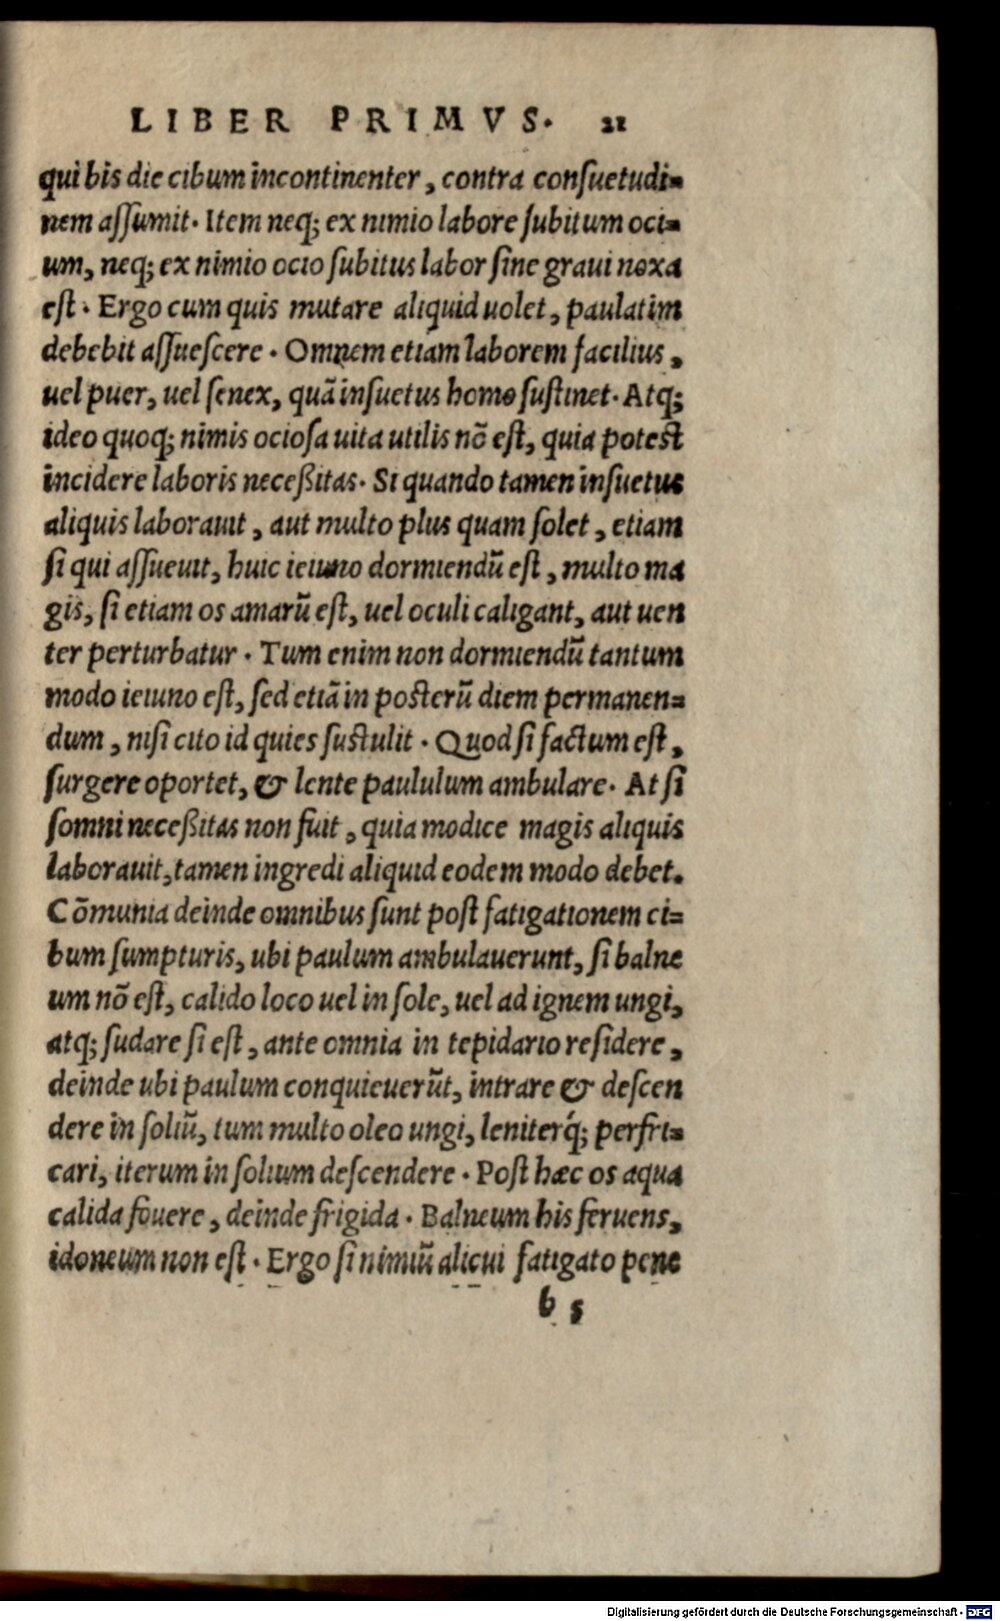 LIBER PRIMVS. 21
qui bis die cibum incontinenter, contra conſuetudi=
nem aſſumit. Item neq; ex nimio labore ſubitum oci=
um, neq; ex nimio ocio ſubitus labor ſine graui noxa
eſt. Ergo cum quis mutare aliquid uolet, paulatim
debebit aſſueſcere. Omnem etiam laborem facilius,
uel puer, uel ſenex, quã inſuetus homo ſuſtinet. Atq;
ideo quoq; nimis ocioſa uita utilis nõ eſt, quia poteſt
incidere laboris neceßitas. Si quando tamen inſuetus
aliquis laborauit, aut multo plus quam ſolet, etiam
ſi qui aſſueuit, huic ieiuno dormiendũ eſt, multo ma
gis, ſi etiam os amarũ eſt, uel oculi caligant, aut uen
ter perturbatur. Tum enim non dormiendũ tantum
modo ieiuno eſt, ſed etiã in poſterũ diem permanen=
dum, niſi cito id quies ſuſtulit. Quod ſi factum eſt,
ſurgere oportet, & lente paululum ambulare. At ſi
ſomni neceßitas non fuit, quia modice magis aliquis
laborauit, tamen ingredi aliquid eodem modo debet.
Cõmunia deinde omnibus ſunt poſt fatigationem ci=
bum ſumpturis, ubi paulum ambulauerunt, ſi balne
um nõ eſt, calido loco uel in ſole, uel ad ignem ungi,
atq; ſudare ſi eſt, ante omnia in tepidario reſidere,
deinde ubi paulum conquieuerũt, intrare & deſcen
dere in ſoliũ, tum multo oleo ungi, leniterq́; perfri=
cari, iterum in ſolium deſcendere. Poſt hæc os aqua
calida fouere, deinde frigida. Balneum his feruens,
idoneum non eſt. Ergo ſi nimiũ alicui fatigato pene
b 5
Digitalisierung gefördert durch die Deutsche Forschungsgemeinschaft - DFG